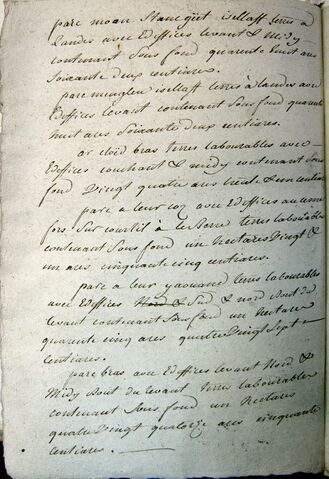 parc moan Stancyet isellaff terres à
Landes avec Edeffices levant & Midy
contenant Sous fond quarente huit ares
Soixante deux centiares.
parc mengleu isellaff terres à landes avec
Edeffices levant contenant Sous fond quarente
huit ares Soixante deux centiares.
or bras terres labourables avec
Edeffices couchant & midy contenant Sous
fond Vingt quatre ares trente & un centiares
parc a leur coz avec Edeffices au
fors. Sur courtil à le terres labourables
contenant Sous fond un hectares Vingt &
un ares cinquante cinq centiares.
parc a leur yaouanc terres labourables
avec Edeffices & Sud & nord bout du
levant contenant Sous fond un hectare
quarente cinq ares quatre Vingt Sept
centiares.
parc bras avec Edeffices levant Nord &
Midy bout du levant terres labourables
contenant Sous fond un hectares
quatre Vingt quatorze ares cinquante
centiares.